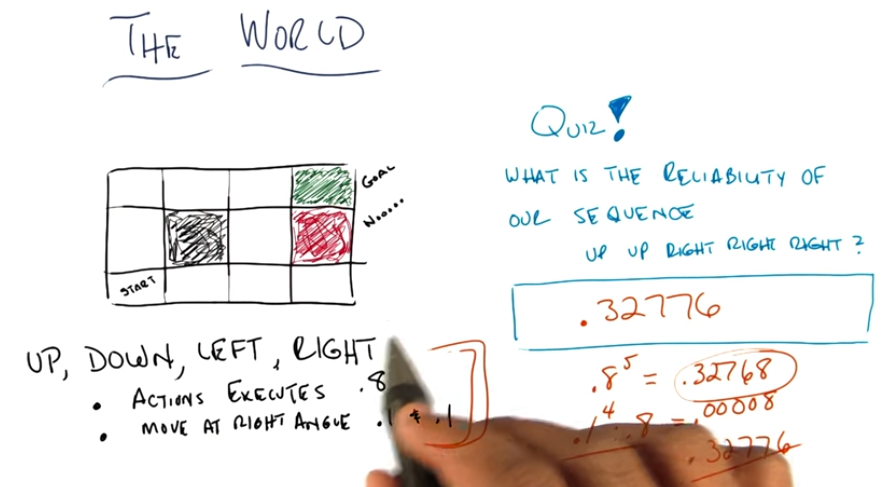 THE WORLD
GOAL
NO.....
START
UP, DOWN, LEFT, RIGHT
• ACTIONS EXECUTES .8
• MOVE AT RIGHT ANGLE .1 & .1
QUIZ!
WHAT IS THE RELIABILITY OF
OUR SEQUENCE
UP UP RIGHT RIGHT RIGHT?
.32776
.8⁵ = .32768
.1⁴ .8 = .00008
.32776